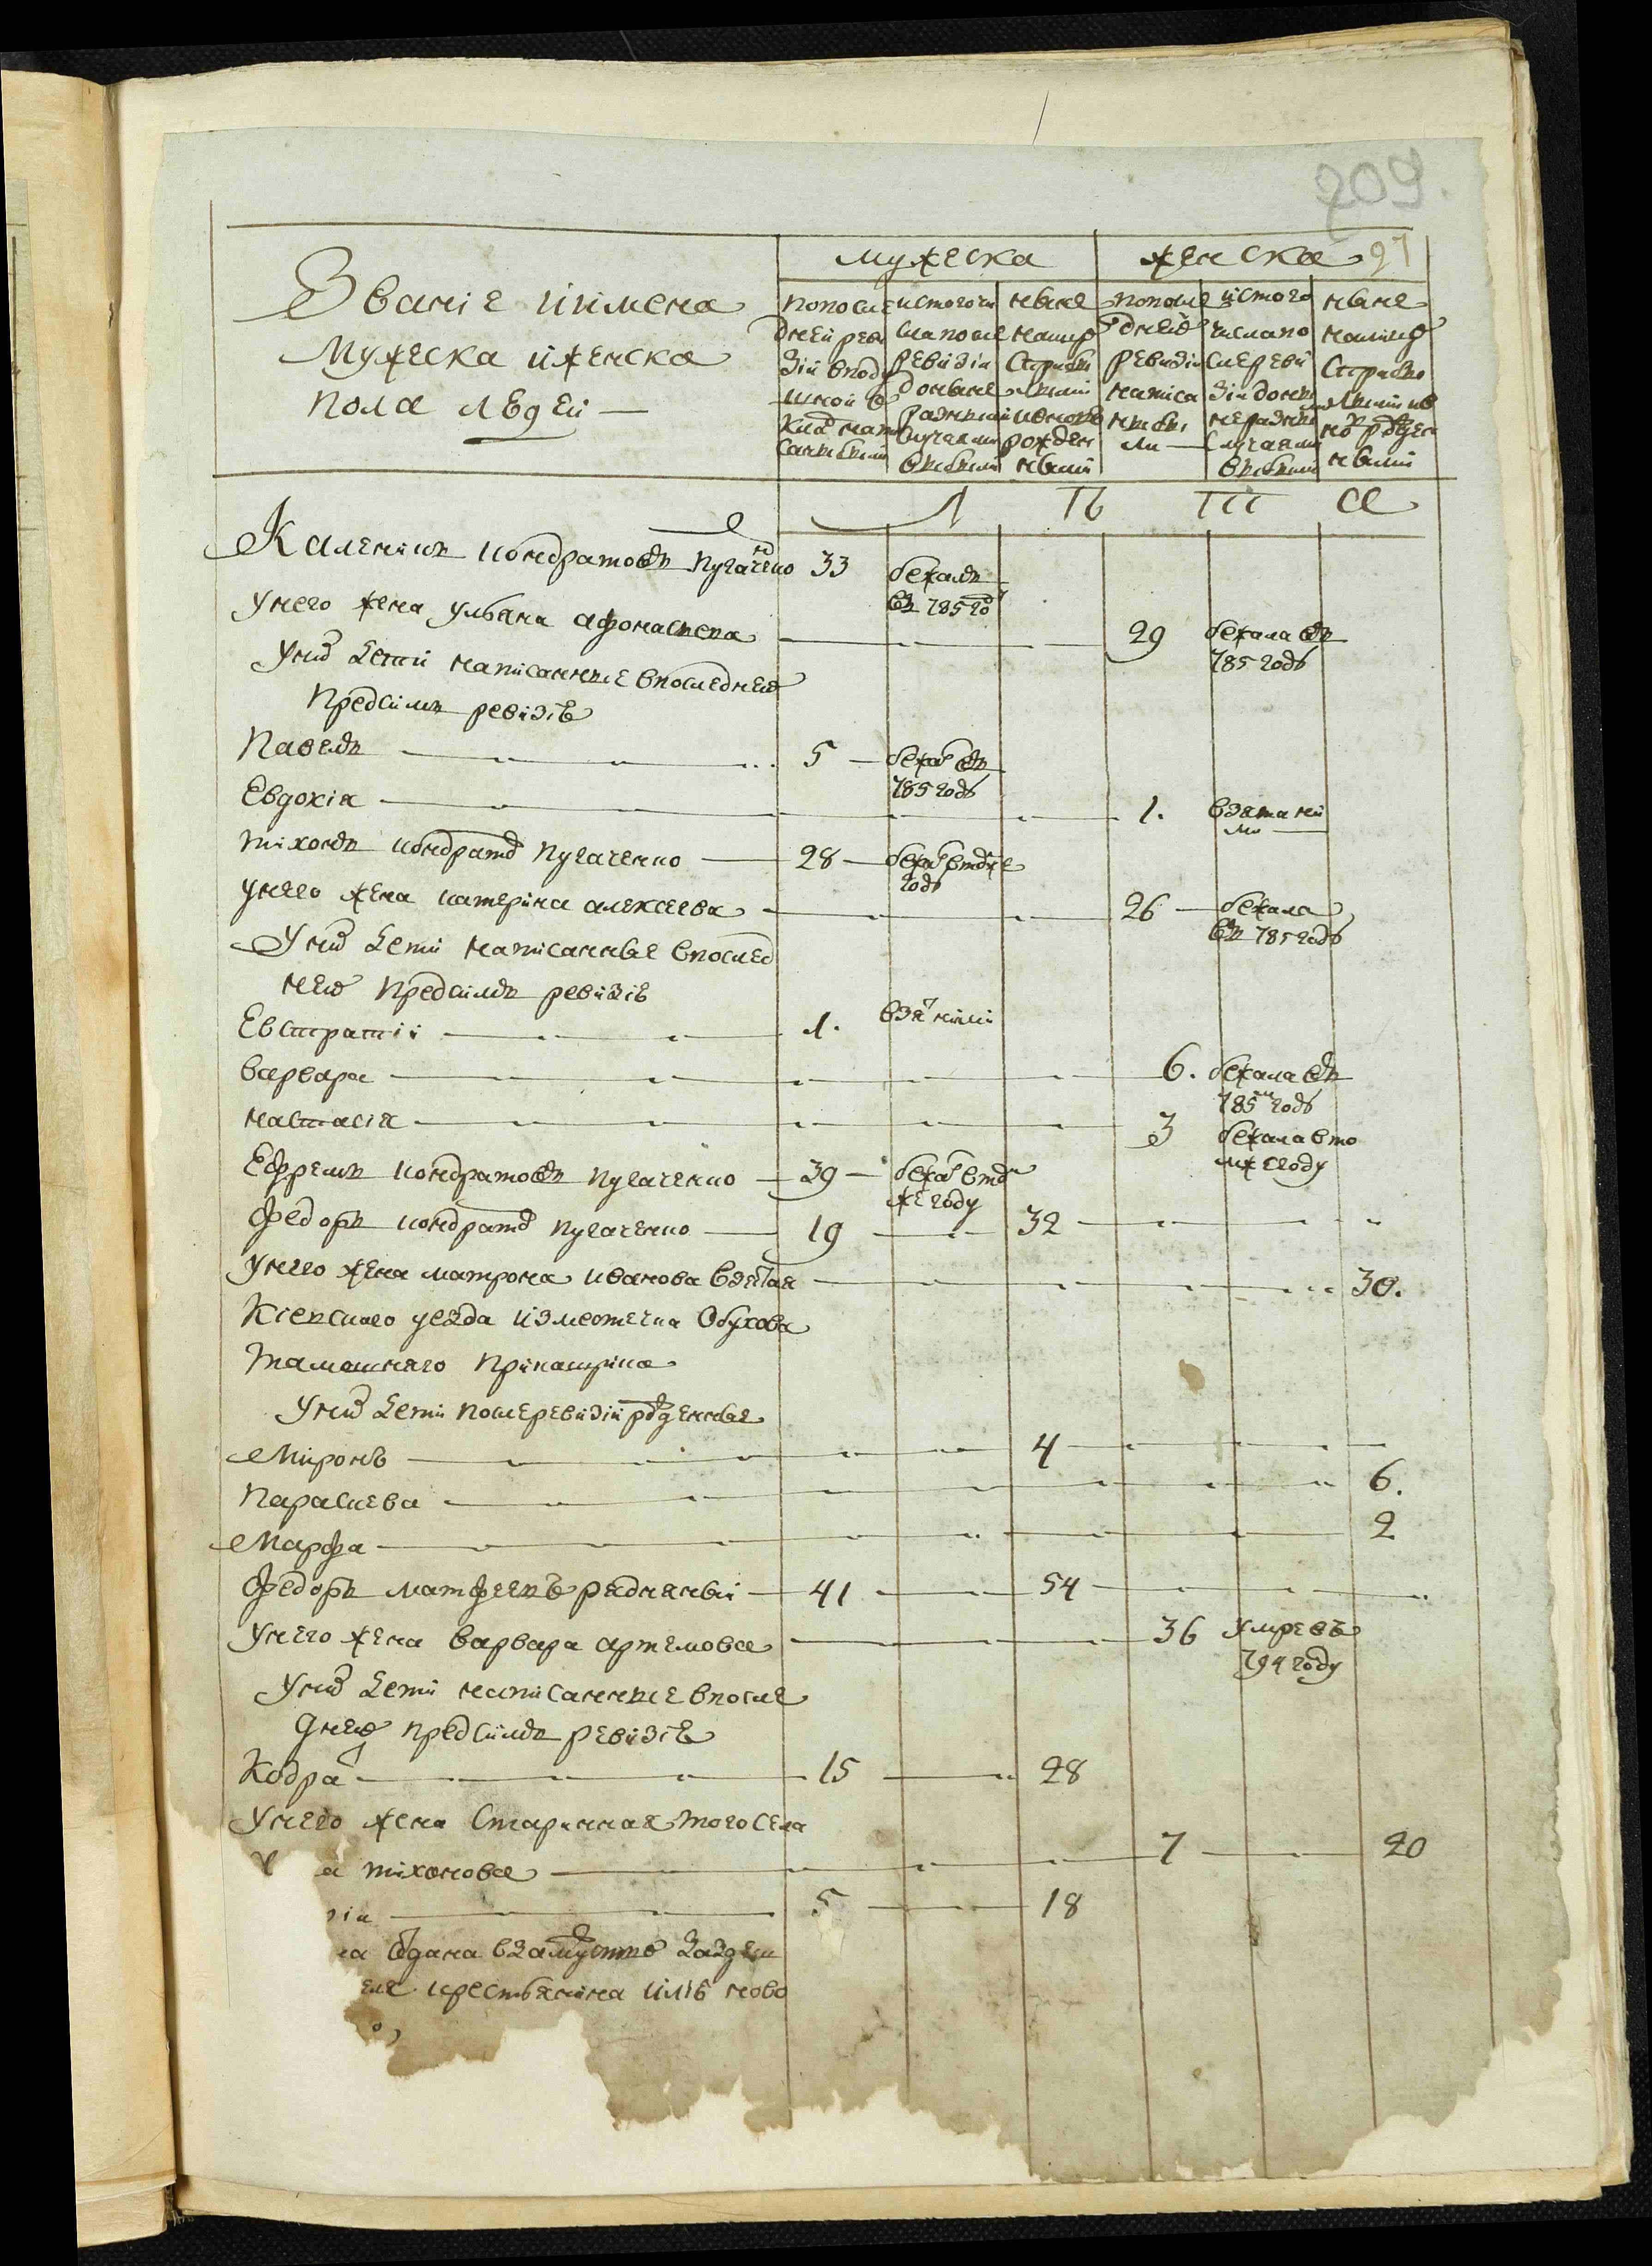 209.
97
Званіе иимена
Мужеска иженска
пола людей
мужеска
женска
попосле
дней реви
зіи вподу
шной о
кладъ напи
санныхъ
истогочи
слапосле
ревизіи
доныне
разными
случаями
выбыли
ныне
налицо
старыхъ
ивновь
рожден
ныхъ
попосле
дней
ревизіи
написа
истого
числапо
слеревй
зіи донын
неразным
случаями
выбыли
ныне
налицо
лѣта
Каленикъ кондратовъ пугаченко 33 бежалъ
въ 785 го
Унего жена ульяна афонасиева 29 бежала въ
785 годъ
Унихъ дети написанные впоследнею
Предсимъ ревизіею
Павелъ 5 бежалъ въ
785 годъ
Евдокія 1. взята ими
тихонъ кондратовъ пугаченко 28 бежалъ втомже
годъ
Унего жена катерина алексеева 26 бежала
въ 785 годъ
Унихъ дети написанные вполед
нею предсимъ ревизіею
Евстратіи 1. взятъ ими
Варвара 6. бежала въ
785м годъ
Настасія 3 бежала вто
мже году
Ефремъ кондратовъ пугаченко 39 бежалъ втом
же году
Федоръ кондратовъ пугаченко 19 32
Унего жена матрона иванова взятая 30.
Кіевскаго уезда изместечка Обухова
Тамошняго
Унихъ дети послеревизіи рожденные
Миронъ 4
Параскева 6.
Марфа 2
Федоръ матфеевъ 41 54
Унего жена варвара артемова 36 умре въ
794 году
Унихъ дети написанные впосле
днею предсимъ ревизіею
Кодратъ 15 28
Унего жена старинная тогосела
а тихонова 7 20
5 18
на отдана взамужство зазде
крестьянина